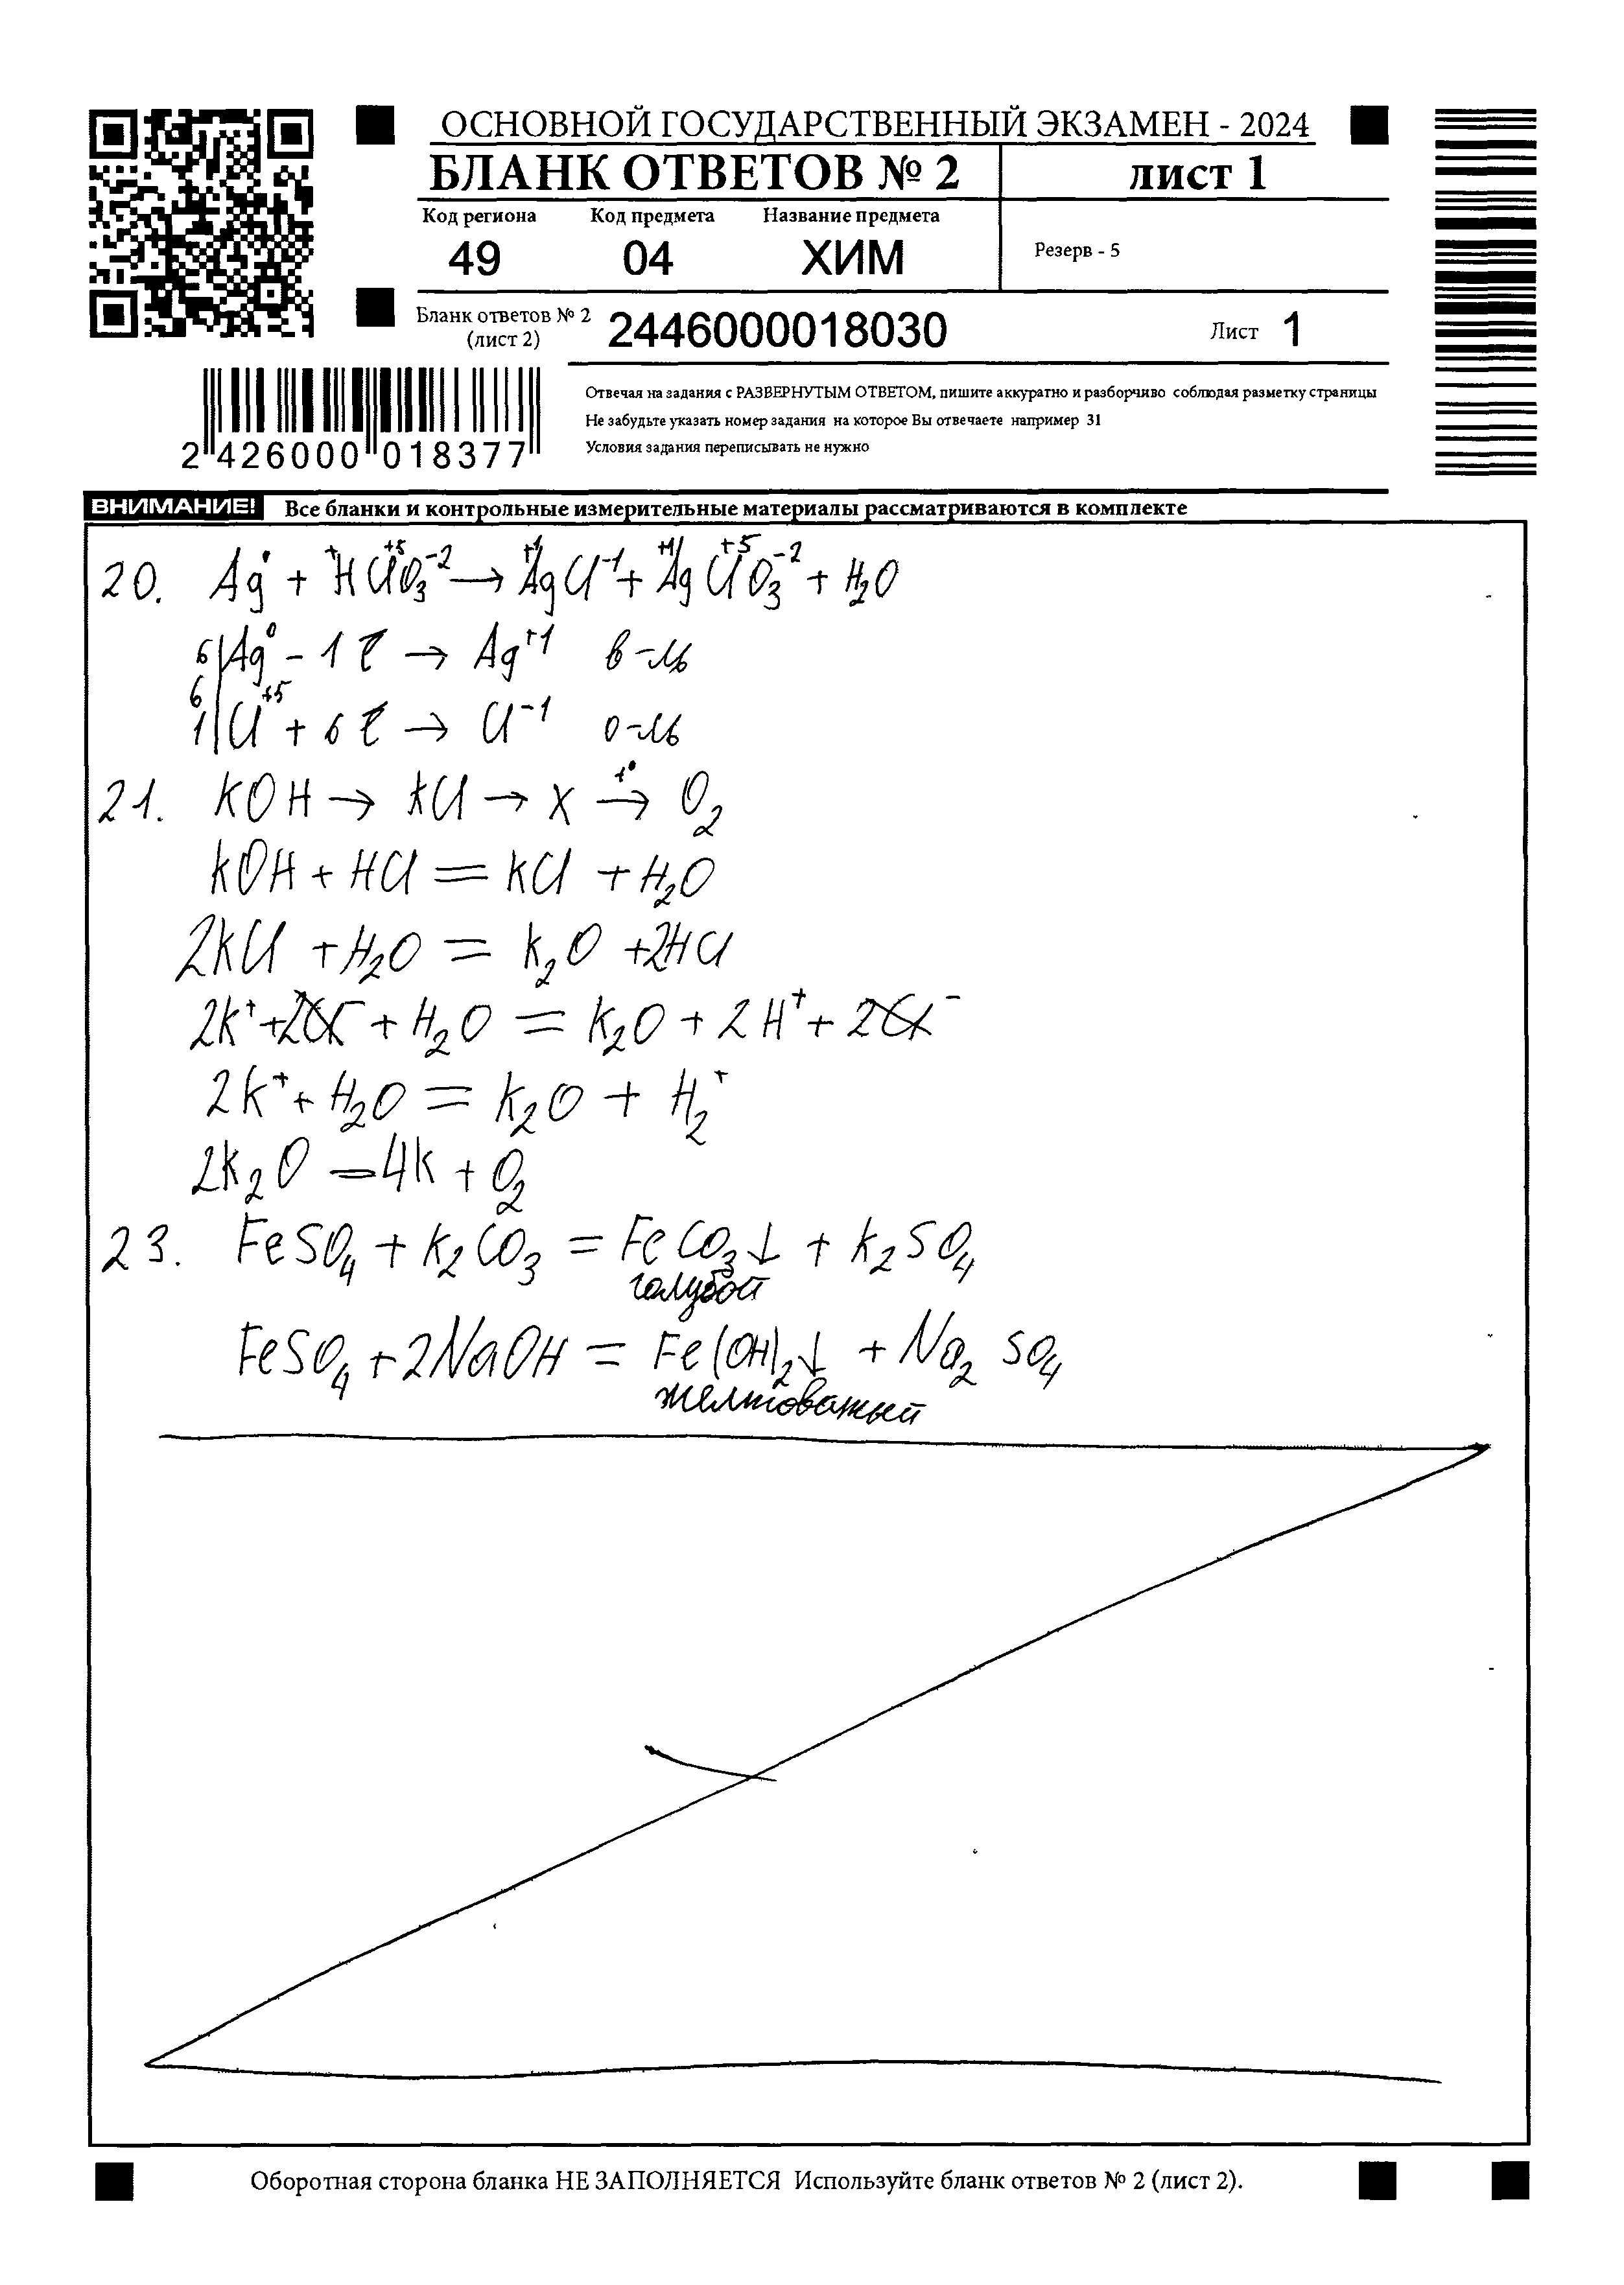 ОСНОВНОЙ ГОСУДАРСТВЕННЫЙ ЭКЗАМЕН - 2024
БЛАНК ОТВЕТОВ № 2 лист 1
Код региона Код предмета Название предмета
49 04 ХИМ Резерв - 5
Бланк ответов № 2
(лист 2) 2446000018030 Лист 1
Отвечая на задания с РАЗВЕРНУТЫМ ОТВЕТОМ, пишите аккуратно и разборчиво соблюдая разметку страницы
Не забудьте указать номер задания на которое Вы отвечаете например 31
Условия задания переписывать не нужно
2 426000 018377
ВНИМАНИЕ! Все бланки и контрольные измерительные материалы рассматриваются в комплекте
20. Ag⁰ + H⁺Cl⁺⁵O₃⁻² → Ag⁺¹Cl⁻¹ + Ag⁺¹Cl⁺⁵O₃⁻² + H₂O
6| Ag⁰ - 1ē → Ag⁺¹ в-ль
6
1| Cl⁺⁵ + 6ē → Cl⁻¹ о-ль
21. KOH → KCl → X t°→ O₂
KOH + HCl = KCl + H₂O
2KCl + H₂O = K₂O + 2HCl
2K⁺ + 2Cl⁻ + H₂O = K₂O + 2H⁺ + 2Cl⁻
2K⁺ + H₂O = K₂O + H₂⁺
2K₂O = 4K + O₂
23. FeSO₄ + K₂CO₃ = FeCO₃↓ + K₂SO₄
голубой
FeSO₄ + 2NaOH = Fe(OH)₂↓ + Na₂SO₄
желтоватый
Оборотная сторона бланка НЕ ЗАПОЛНЯЕТСЯ Используйте бланк ответов № 2 (лист 2).